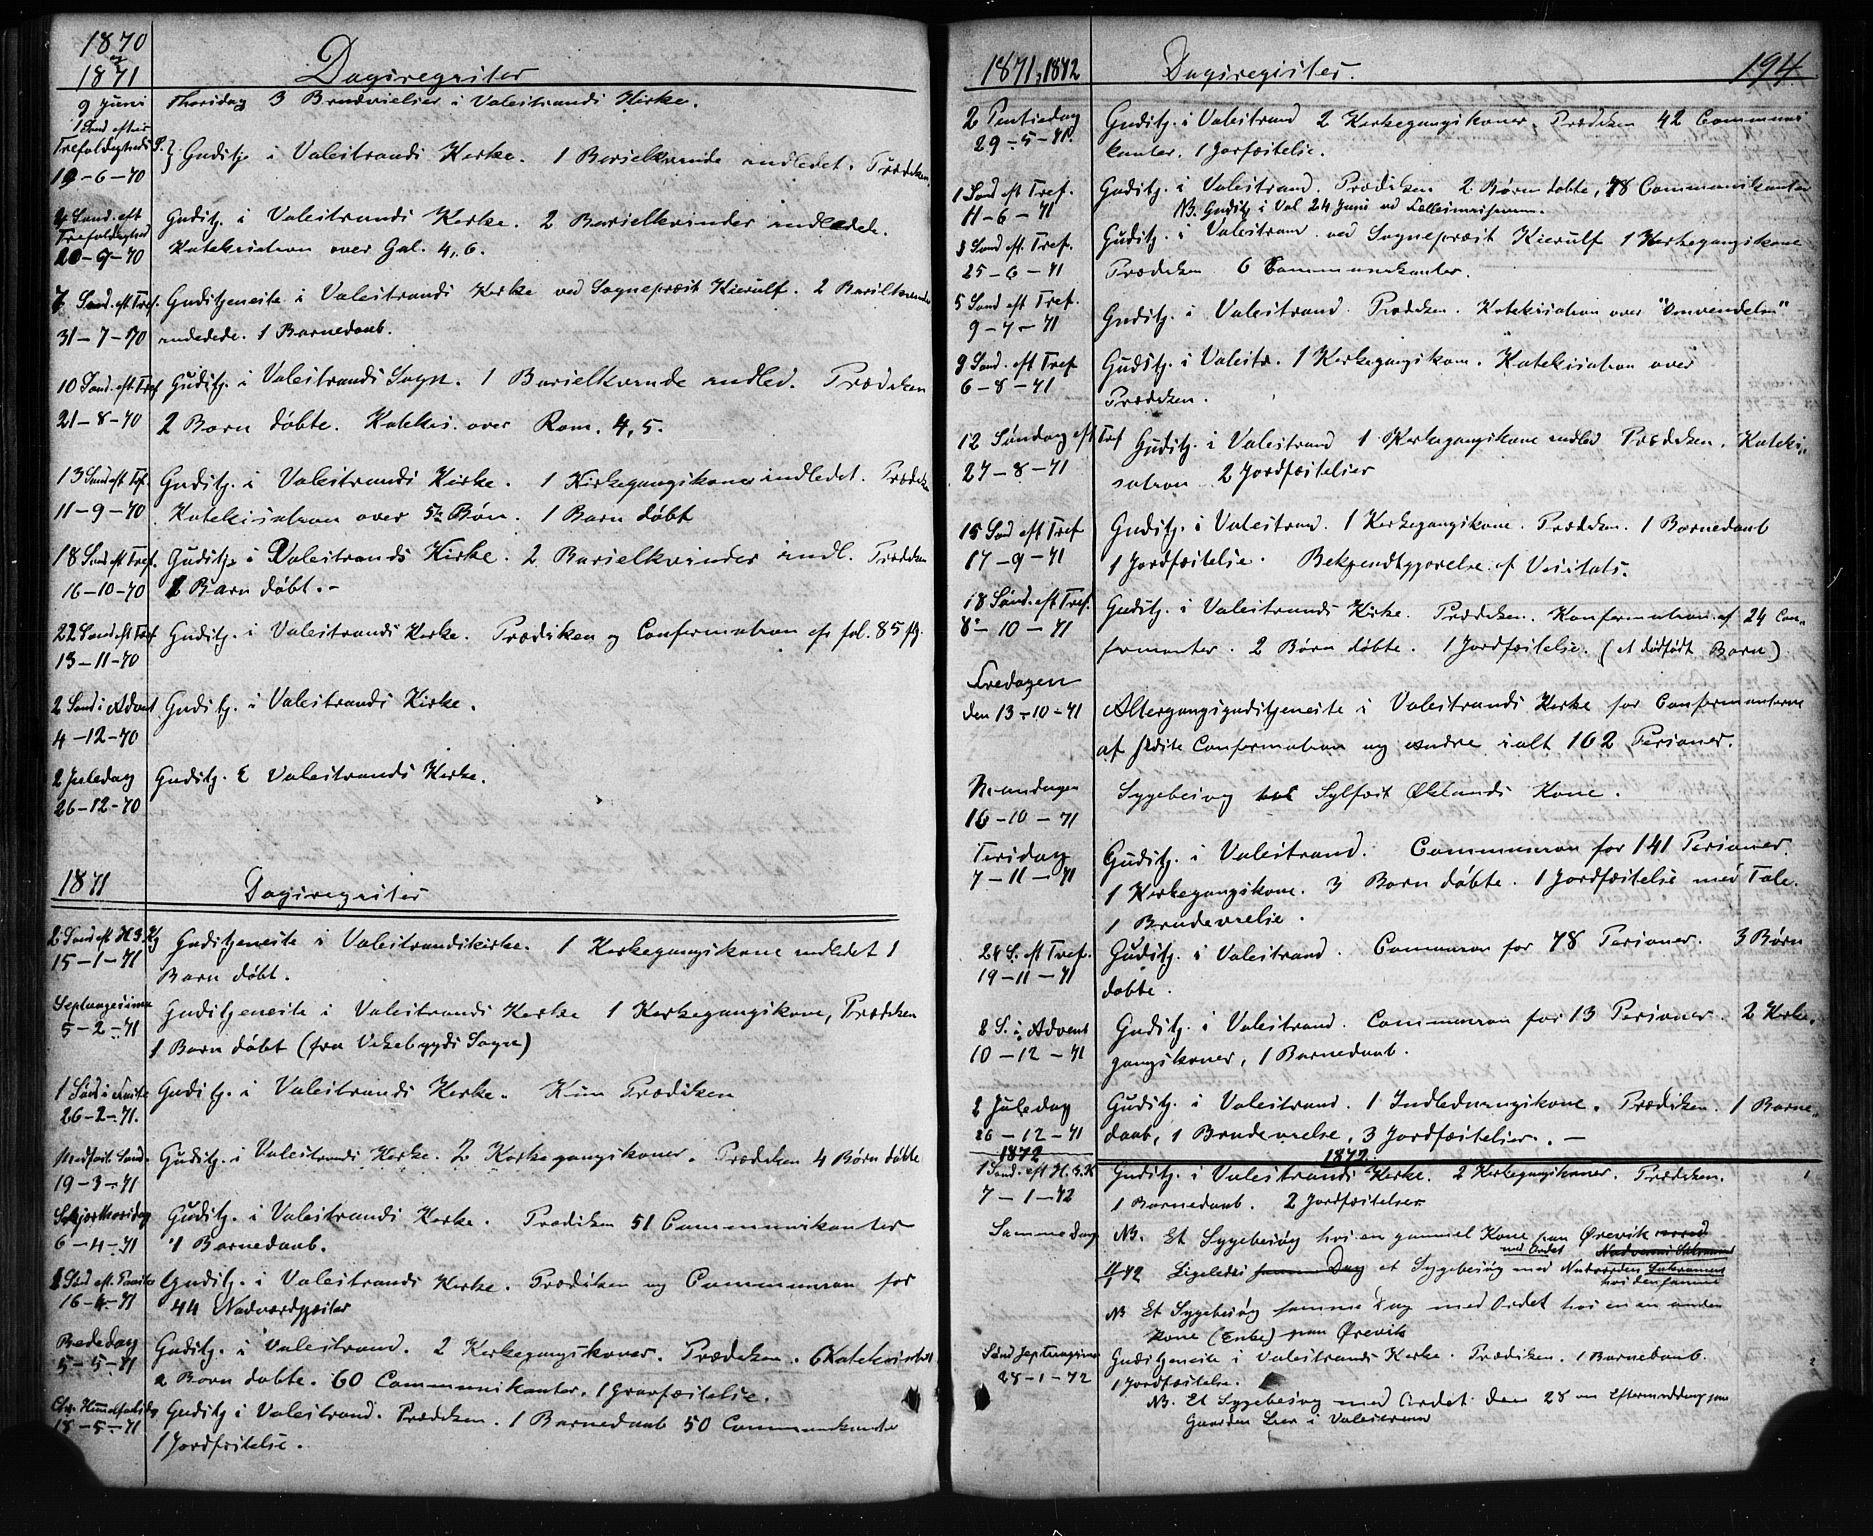 1870
og
1871
Dagsregister
9 Juni
Thorsdag 3 Brudvielser i Valestrands Kirke.
1 Sønd efter
Trefoldigheds S.
19-6-70
Gudstj. i Valestrands Kirke. 1 Barselkvinde indledet. Prædiken.
4 Sønd. eft
Trefoldighed
Gudstj. i Valestrands Kirke. 2 Barselkvinder indledede.
Katekisation over Gal. 4, 6.
7 Sønd. eft Tref.
31-7-70
Gudstjeneste i Valestrands Kirke ved Sogneprest Kierulf. 2 Barselkvinder
indledede. 1 Barnedaab.
10 Sønd. eft Tref
21-8-70
Gudstj. i Valestrands Sogn. 1 Barselkvinde indled. Prædiken
2 Børn døbte. Katekis. over Rom. 4, 5.
13 Sønd eft Tref.
11-9-70
Gudstj. i Valestrands Kirke. 1 Kirkegangskone indledet. Prædiken
Katekisation over 5te Bøn. 1 Barn døbt
18 Sønd eft Tref.
16-10-70
Gudstj. i Valestrands Kirke. 2 Barselkvinder indl. Prædiken
1 Barn døbt. -
22 Sønd eft Tref
13-11-70
Gudstj. i Valestrands Kirke. Prædiken og Confirmation cfr fol. 85 flg.
2 Sønd i Advent
4-12-70
Gudstj. i Valestrands Kirke.
2 Juledag
26-12-70
Gudstj. i Valestrands Kirke.
1871
Dagsregister
2 Sønd eft H. 3. Kg
15-1-71
Gudstjeneste i Valestrandskirke. 1 Kirkegangskone indledet 1
Barn døbt.
Septuagesima
5-2-71
Gudstjeneste i Valestrands Kirke 1 Kirkegangskone, Prædiken
1 Barn døbt (fra Vikebygds Sogn)
1 Sønd i Faste
26-2-71.
Gudstj. i Valestrands Kirke. Kun Prædiken
Midfaste Sønd.
19-3-71
Gudstj. i Valestrands Kirke. 2 Kirkegangskoner. Prædiken 4 Børn døbte
Skjærthorsdag
6-4-71
Gudstj. i Valestrands Kirke. Prædiken 51 Communikanter
1 Barnedaab.
1 Sønd eft. Paaske
16-4-71
Gudstj. i Valestrands Kirke. Prædiken og Communion for
44 Nadverdgjester
Bededag
5-5-71
Gudstj. i Valestrand. 2 Kirkegangskoner. Prædiken. Katekisation
2 Børn døbte. 60 Communikanter. 1 Gravfæstelse.
Chr. Himmelfartsdag
18-5-71
Gudstj i Valestrand. Prædiken. 1 Barnedaab 50 Communikanter
1 Jordfæstelse.
1871, 1872
Dagsregister.
194
2 Pentsedag
29-5-71.
Gudstj. i Valestrand 2 Kirkegangskoner, Prædiken 42 Communi
kanter. 1 Jorfæstelse.
1 Sønd eft Tref.
11-6-71
Gudstj. i Valestrand. Prædiken 2 Børn døbte, 78 Communikanter
NB. Gudstj i Val 24 Juni ved
3 Sønd eft Tref.
25-6-71
Gudstj. i Valestrand ved Sogneprest Kierulf 1 Kirkegangskone
Prædiken 6 Communikanter.
5 Sønd eft Tref.
9-7-71
Gudstj. i Valestrand. Prædiken. Katekisation over "Omvendelsen"
9 Sønd. eft Tref
6-8-71
Gudstj. i Valestr. 1 Kirkegangskon. Katekisation over
Prædiken.
12 Søndag eft Tref
27-8-71
Gudstj. i Valestrand 1 Kirkegangskone indled Prædiken. Kateki-
sation 2 Jordfæstelser
15 Sønd eft Tref
17-9-71
Gudstj. i Valestrand. 1 Kirkegangskone. Prædiken. 1 Barnedaab
1 Jordfæstelse. Bekjendtgjørelse af Visitats.
18 Sønd. eft Tref.
8-10-71
Gudstj. i Valestrands Kirke. Prædiken. Konfirmation af 24 Con-
firmanter. 2 Børn døbte. 1 Jordfæstelse. (et dødfødt Barn)
Fredagen
den 13-10-71
Altergangsgudstjeneste i Valestrands Kirke for Confirmanterne
af sidste Confirmation og andre ialt 102 Personer.
Mandagen
16-10-71
Sygebesøg hos Sylfest Øklands Kone.
Tirsdag
7-11-71
Gudstj. i Valestrand. Communion for 141 Personer.
1 Kirkegangskone. 3 Børn døbte. 1 Jordfæstelse med Tale.
1 Brudevielse.
24 S. eft Tref.
19-11-71
Gudstj. i Valestrand. Communion for 78 Personer. 3 Børn
døbte.
2 S. i Advent
10-12-71
Gudstj. i Valestrand. Communion for 13 Personer. 2 Kirke-
gangskoner, 1 Barnedaab.
2 Juledag
26-12-71
Gudstj. i Valestrand. 1 Indledningskone. Prædiken. 1 Barne-
daab, 1 Brudevielse, 3 Jordfæstelser. -
1872
1872.
1 Sønd. eft H. 3. K
7-1-72
Gudstj. i Valestrands Kirke. 2 Kirkegangskoner. Prædiken.
1 Barnedaab. 2 Jordfæstelser
Samme Dag
NB. Et Sygebesøg hos en gammel Kone paa Ørevik
med Ordet
Nadverens Sakrament
11/1 72 Ligeledes samme Dag et Sygebesøg med Nadverdens Sakrament
hos den samme
NB Et Sygebesøg samme Dag med Ordet hos en en anden
Kone (Enke) paa Ørevik
Sønd Septuagesima
28-1-72
Gudstjeneste i Valestrands Kirke. Prædiken. 1 Barnedaab.
1 Jordfæstelse.
NB. Et Sygebesøg med Ordet den 28 om Eftermiddag paa
Gaarden Lier i Valestrand